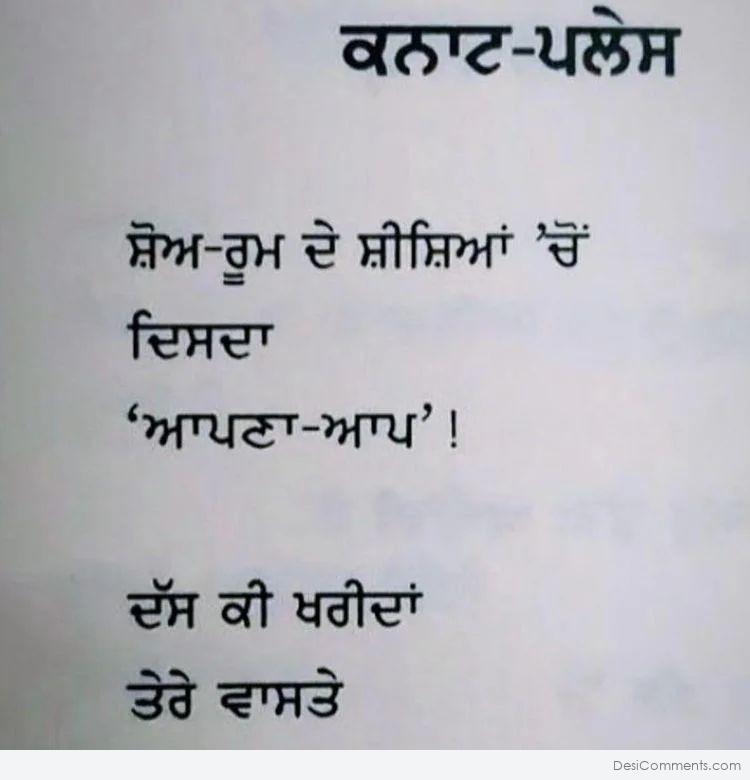 ਕਨਾਟ-ਪਲੇਸ
ਸ਼ੋਅ-ਰੂਮ ਦੇ ਸ਼ੀਸ਼ਿਆਂ ’ਚੋਂ
ਦਿਸਦਾ
‘ਆਪਣਾ-ਆਪ’ !
ਦੱਸ ਕੀ ਖਰੀਦਾਂ
ਤੇਰੇ ਵਾਸਤੇ
DesiComments.com